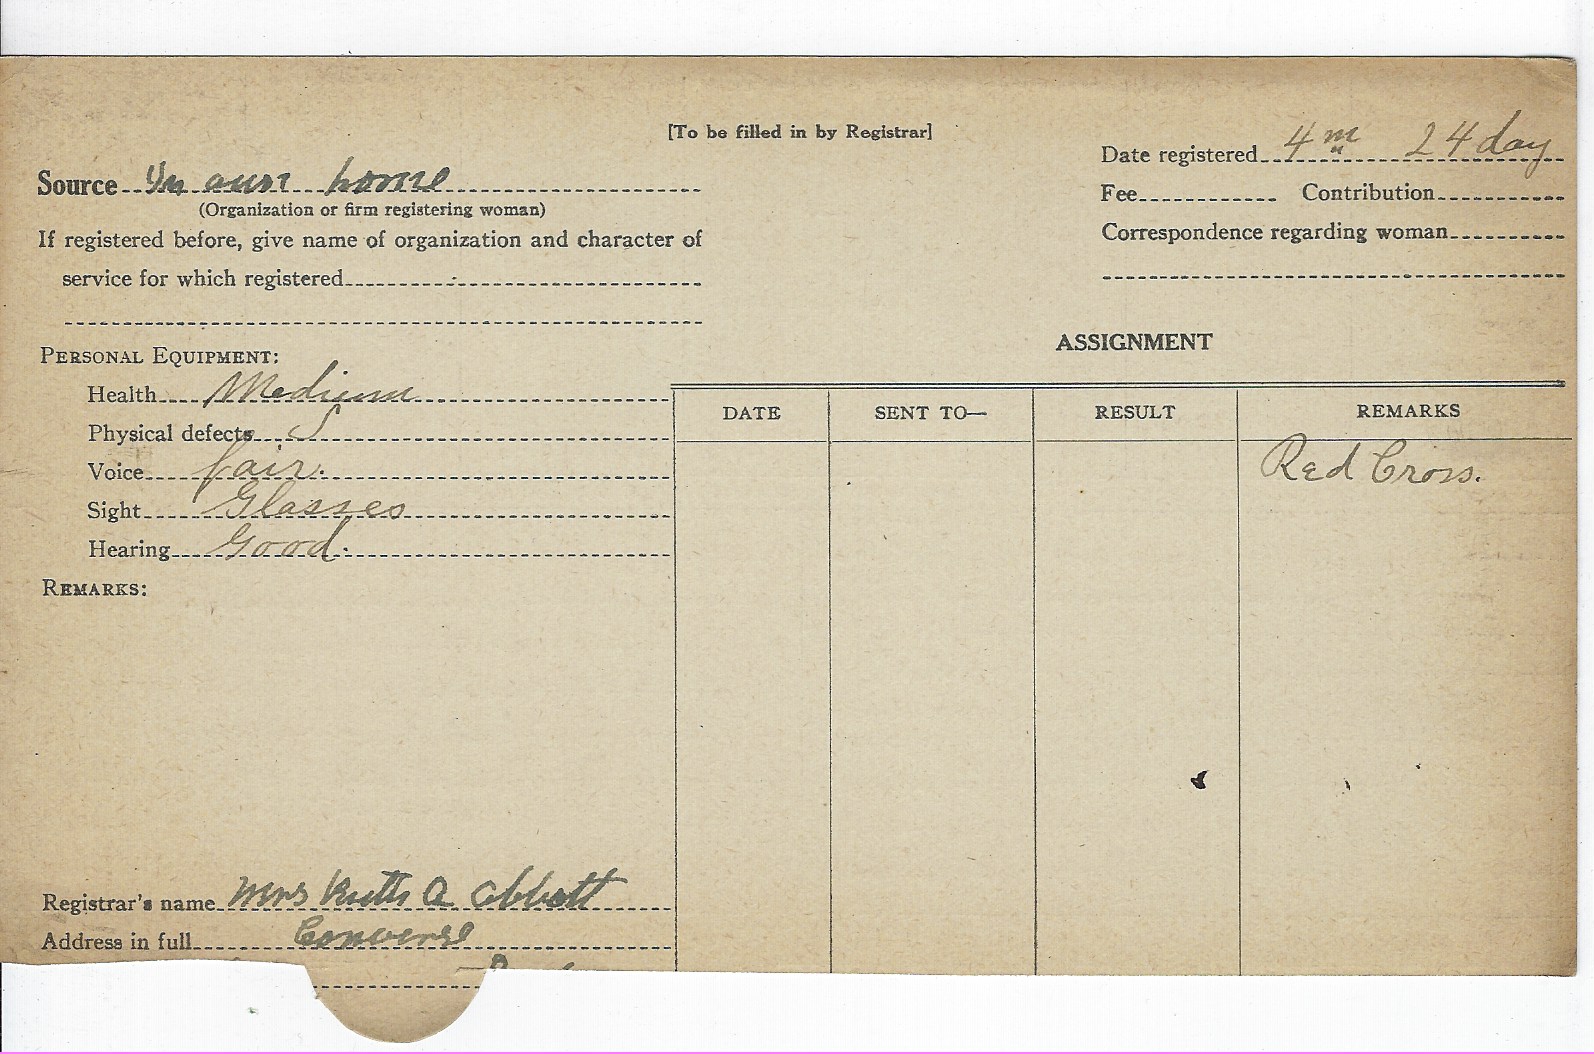 [To be filled in by Registrar]
Date registered 4 m 24 day
Source In own home
(Organization or firm registering woman)
Fee Contribution
If registered before, give name of organization and character of
service for which registered
Correspondence regarding woman
PERSONAL EQUIPMENT:
Health Medium
Physical defects
Voice fair.
Sight Glasses
Hearing Good.
REMARKS:
ASSIGNMENT
DATE SENT TO— RESULT REMARKS
Red Cross.
Registrar's name Mrs Ruth A Abbott
Address in full Converse